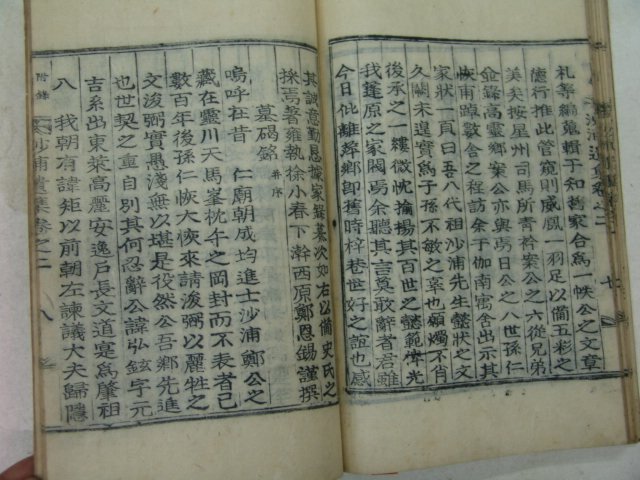 礼等編蒐輯于知舊家合爲一帙公之文章
德行推此管窺則威鳳一羽足以備五彩之
美矣按星州司馬所青衿案公之六從兄弟
金錄高靈鄕案公亦與焉日公之八世孫仁
恢甫踔數舍之程訪余于伽南寓舍出示其
家狀一頁曰吾八代祖沙浦先生懿狀之文
久闕未遑實爲子孫之不幸也願燭不肖
後承之一縷微忱摛揚其百世之懿範惟光
我蓬原之家閥焉余聽其言莫敢辭者君雖
今日仳離梓鄕卽舊時梓巷世好之誼也感
沙浦遺集卷之二
七
其誠意勤息據家録纂次如右以備史氏之
採焉著雍執徐小春下澣西原鄭恩錫謹撰
墓碣銘 并序
嗚呼在昔 仁廟朝成均進士沙浦鄭公之
藏在靈川天馬峯枕午之岡封而不表者已
數百年後孫仁恢大恢來請浚弼以麗牲之
文浚弼實愚無以堪是役然公吾鄕先進
也世契之重自別其何忍辭公諱弘鉉字元
吉系出東萊高麗安逸戶長文道寔爲肇祖
入 我朝有諱矩以前朝左諫議大夫歸隱
附錄
沙浦遺集卷之二
八